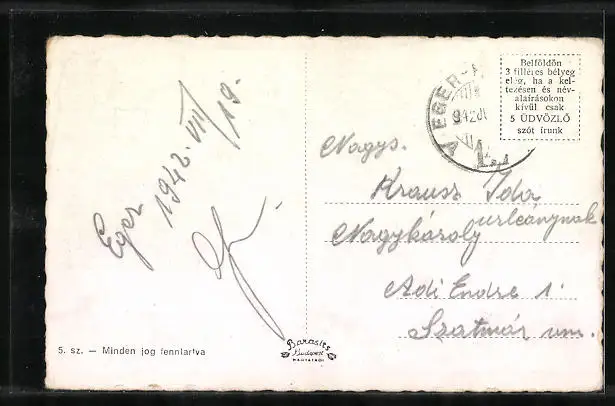 Eger 1942. VII/19.
EGER
942 JUL
Belföldön
3 filléres bélyeg
elég, ha a kel-
tezésen és név-
aláírásokon
kívül csak
5 ÜDVÖZLŐ
szót írunk
Nagys.
Krausz Ida
urleánynak
Nagykároly
Adi Endre 1.
Szatmár vm.
5. sz. — Minden jog fenntartva
Barasits
Budapest